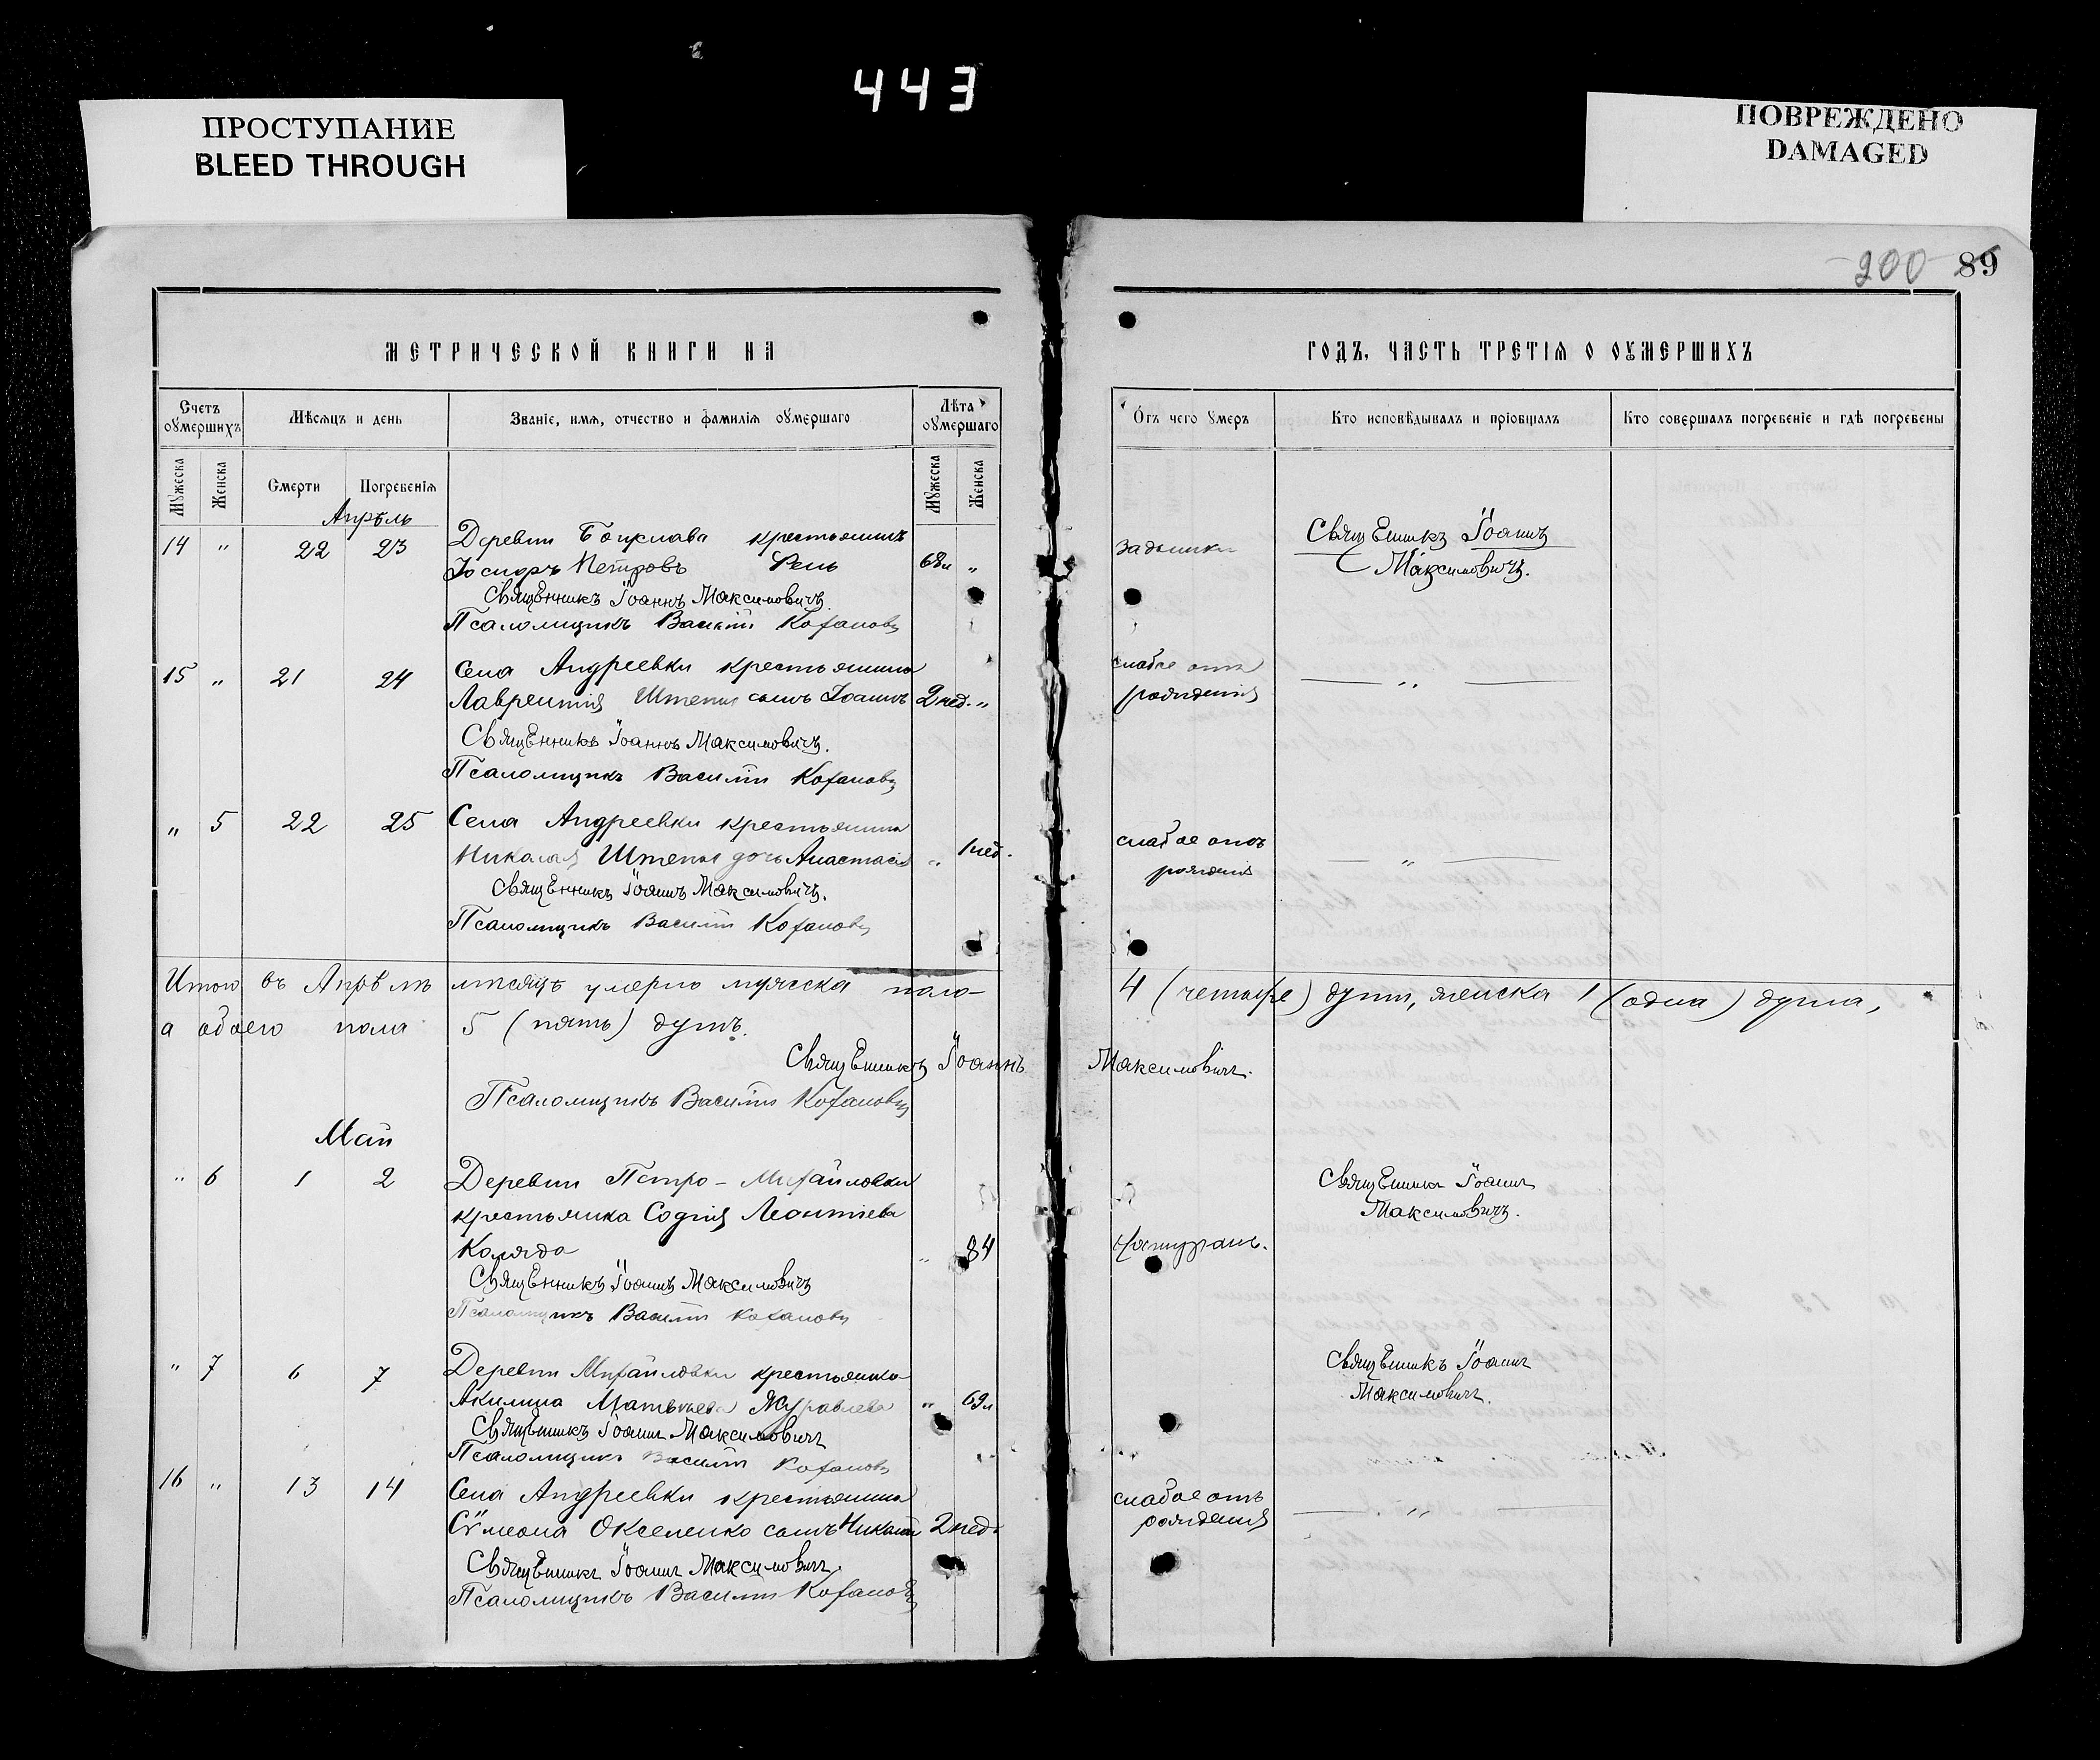 443
ПРОСТУПАНИЕ
BLEED THROUGH
ПОВРЕЖДЕНО
DAMAGED
200 89
МЕТРИЧЕСКОЙ КНИГИ НА
ГОДЪ, ЧАСТЬ ТРЕТІЯ О ОУМЕРШИХЪ
Счетъ оумершихъ
Мѣсяцъ и день
Званіе, имя, отчество и фамилія оумершаго
Лѣта оумершаго
Отъ чего умеръ
Кто исповѣдывалъ и пріобщалъ
Кто совершалъ погребеніе и гдѣ погребены
Мужеска Женска Смерти Погребенія Мужеска Женска
Апрѣль
14 " 22 23 Деревни крестьянинъ
Іосифъ Петровъ 68л " задышка Священникъ Іоаннъ
Максимовичъ.
Священникъ Іоаннъ Максимовичъ.
Псаломщикъ Василій Кохановъ
15 " 21 24 Села Андреевки крестьянина
Лаврентія Штепы сынъ Іоаннъ 2 нед. " слабое отъ
рожденія — " —
Священникъ Іоаннъ Максимовичъ.
Псаломщикъ Василій Кохановъ
" 5 22 25 Села Андреевки крестьянина
Николая Штепы дочь Анастасія " 1 нед. слабое отъ
рожденія — " —
Священникъ Іоаннъ Максимовичъ.
Псаломщикъ Василій Кохановъ
Итого въ Апрѣлѣ мѣсяцѣ умерло мужеска пола- 4 (четыре) душъ, женска 1 (одна) душа,
а обоего пола 5 (пять) душъ.
Священникъ Іоаннъ Максимовичъ.
Псаломщикъ Василій Кохановъ
Май
" 6 1 2 Деревни Петро-Михайловки
крестьянка Софія Леонтіева
Коляда " 84 Священникъ Іоаннъ
Максимовичъ.
Священникъ Іоаннъ Максимовичъ
Псаломщикъ Василій Кохановъ
" 7 6 7 Деревни Михайловки крестьянка
Акилина Матвѣева Журавлева " 69л Священникъ Іоаннъ
Максимовичъ.
Священникъ Іоаннъ Максимовичъ
Псаломщикъ Василій Кохановъ
16 " 13 14 Села Андреевки крестьянина
Сѵмеона Окселенко сынъ Николай 2 нед. слабое отъ
рожденія — " —
Священникъ Іоаннъ Максимовичъ.
Псаломщикъ Василій Кохановъ